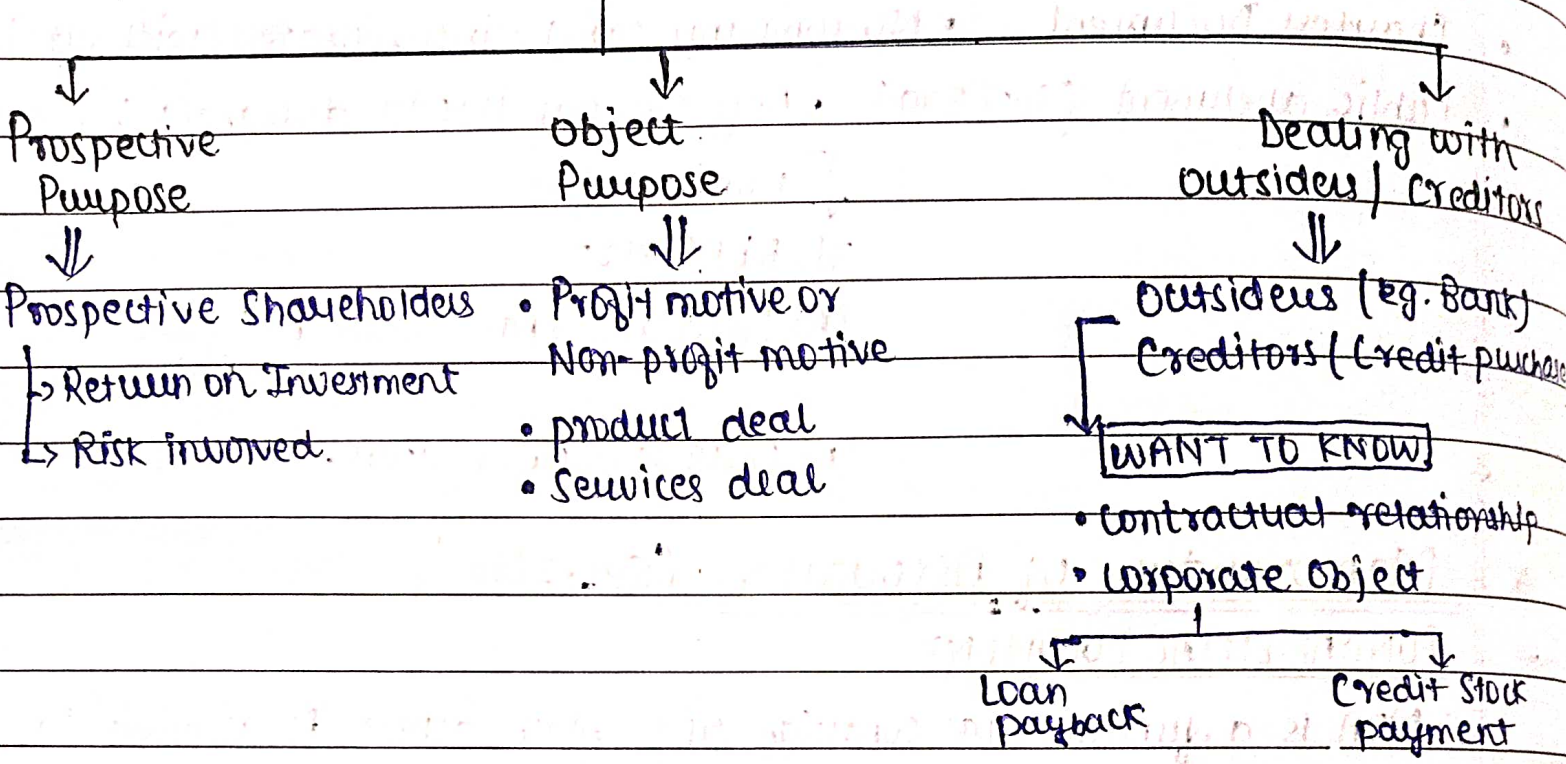 Prospective
Purpose
Prospective Shareholders
Return on Investment
Risk involved.
Object
Purpose
• Profit motive or
Non-profit motive
• product deal
• Services deal
Dealing with
outsiders / Creditors
outsiders (eg. Bank)
Creditors (Credit purchase
WANT TO KNOW
• contractual relationship
• corporate object
Loan
payback
Credit Stock
payment